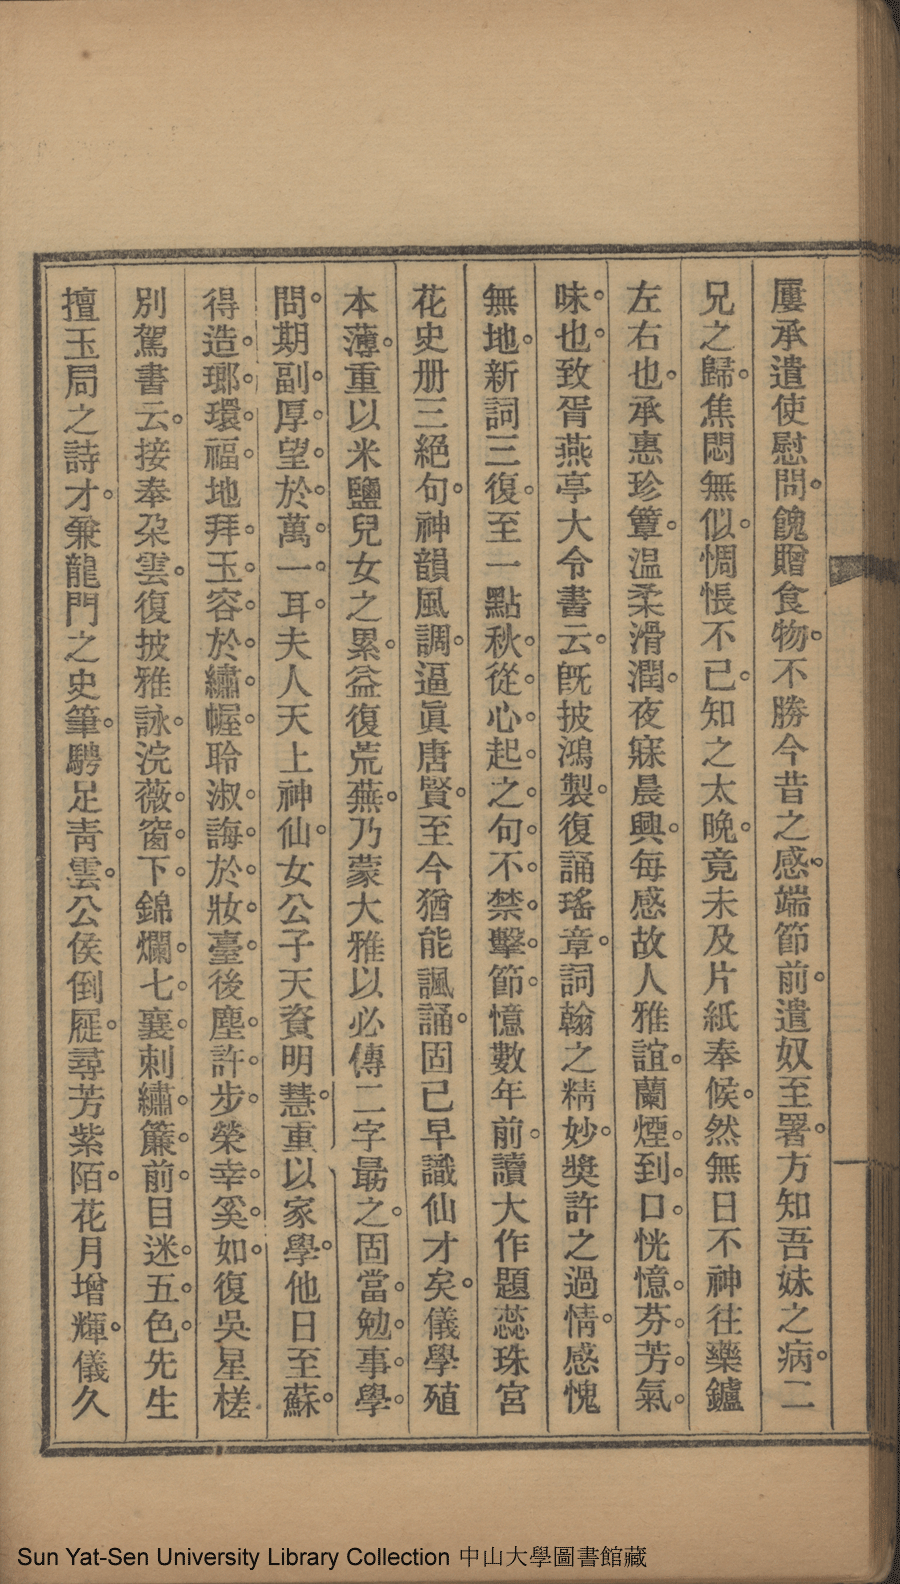 屢承遣使慰問。餽贈食物。不勝今昔之感。端節前。遣奴至署。方知吾妹之病。二
兄之歸。焦悶無似。惆悵不已。知之太晚。竟未及片紙奉候。然無日不神往藥鑪
左右也。承惠珍簟。溫柔滑潤。夜寐晨興。每感故人雅誼。蘭煙。到。口。恍憶。芬。芳。氣。
味。也。致胥燕亭大令書云。旣披鴻製。復誦瑤章。詞翰之精妙。奬許之過情。感愧
無地。新詞三復。至一點秋。從。心。起。之。句。不。禁。擊。節。憶數年前。讀大作題蕊珠宮
花史册三絕句。神韻風調。逼眞唐賢。至今猶能諷誦。固已早識仙才矣。儀學殖
本薄。重以米鹽兒女之累。益復荒蕪。乃蒙大雅以必傳二字最之。固當。勉。事。學。
問。期副。厚。望。於。萬。一。耳。夫人天上神仙。女公子天資明慧。重以家學。他日至蘇。
得造。瑯。環。福。地拜。玉。容。於。繡。幄。聆淑。誨。於。妝。臺。後塵。許。步。榮幸。奚。如。復吳星槎
別駕書云。接奉朶雲。復披雅詠。浣薇。窗。下。錦爛。七。襄。刺繡。簾。前。目迷。五。色。先生
擅玉局之詩才。兼龍門之史筆。騁足靑雲。公侯倒屣。尋芳紫陌。花月增輝。儀久
Sun Yat-Sen University Library Collection 中山大學圖書館藏